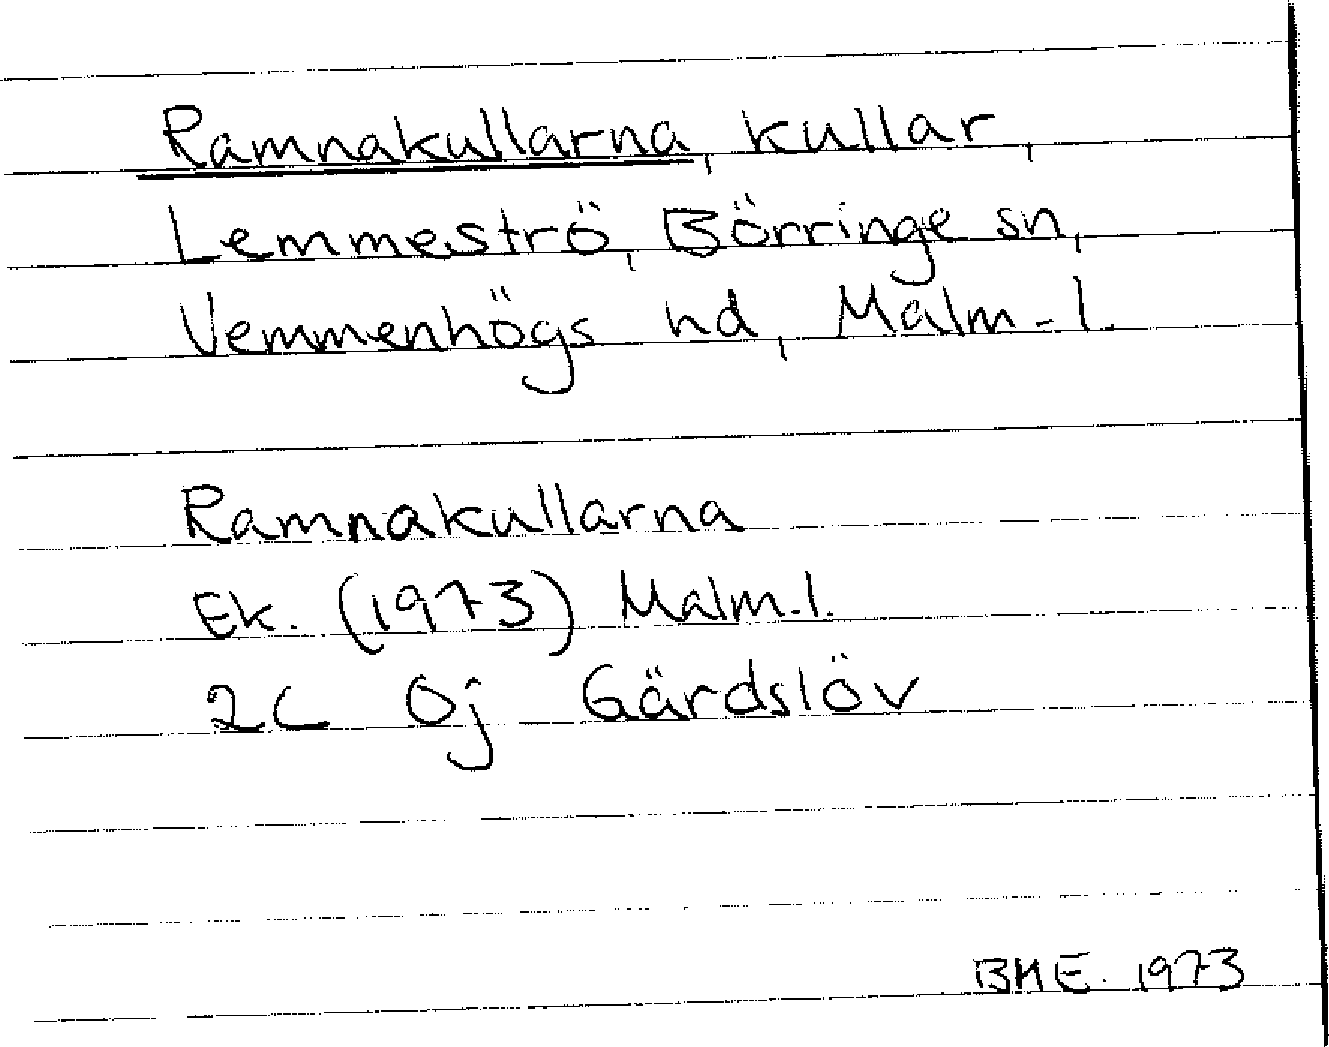 Ramnakullarna, kullar,
Lemmeströ, Börringe sn,
Vemmenhögs hd, Malm-l.
Ramnakullarna
Ek. (1973) Malm.l.
2C 0j Gärdslöv
BME. 1973